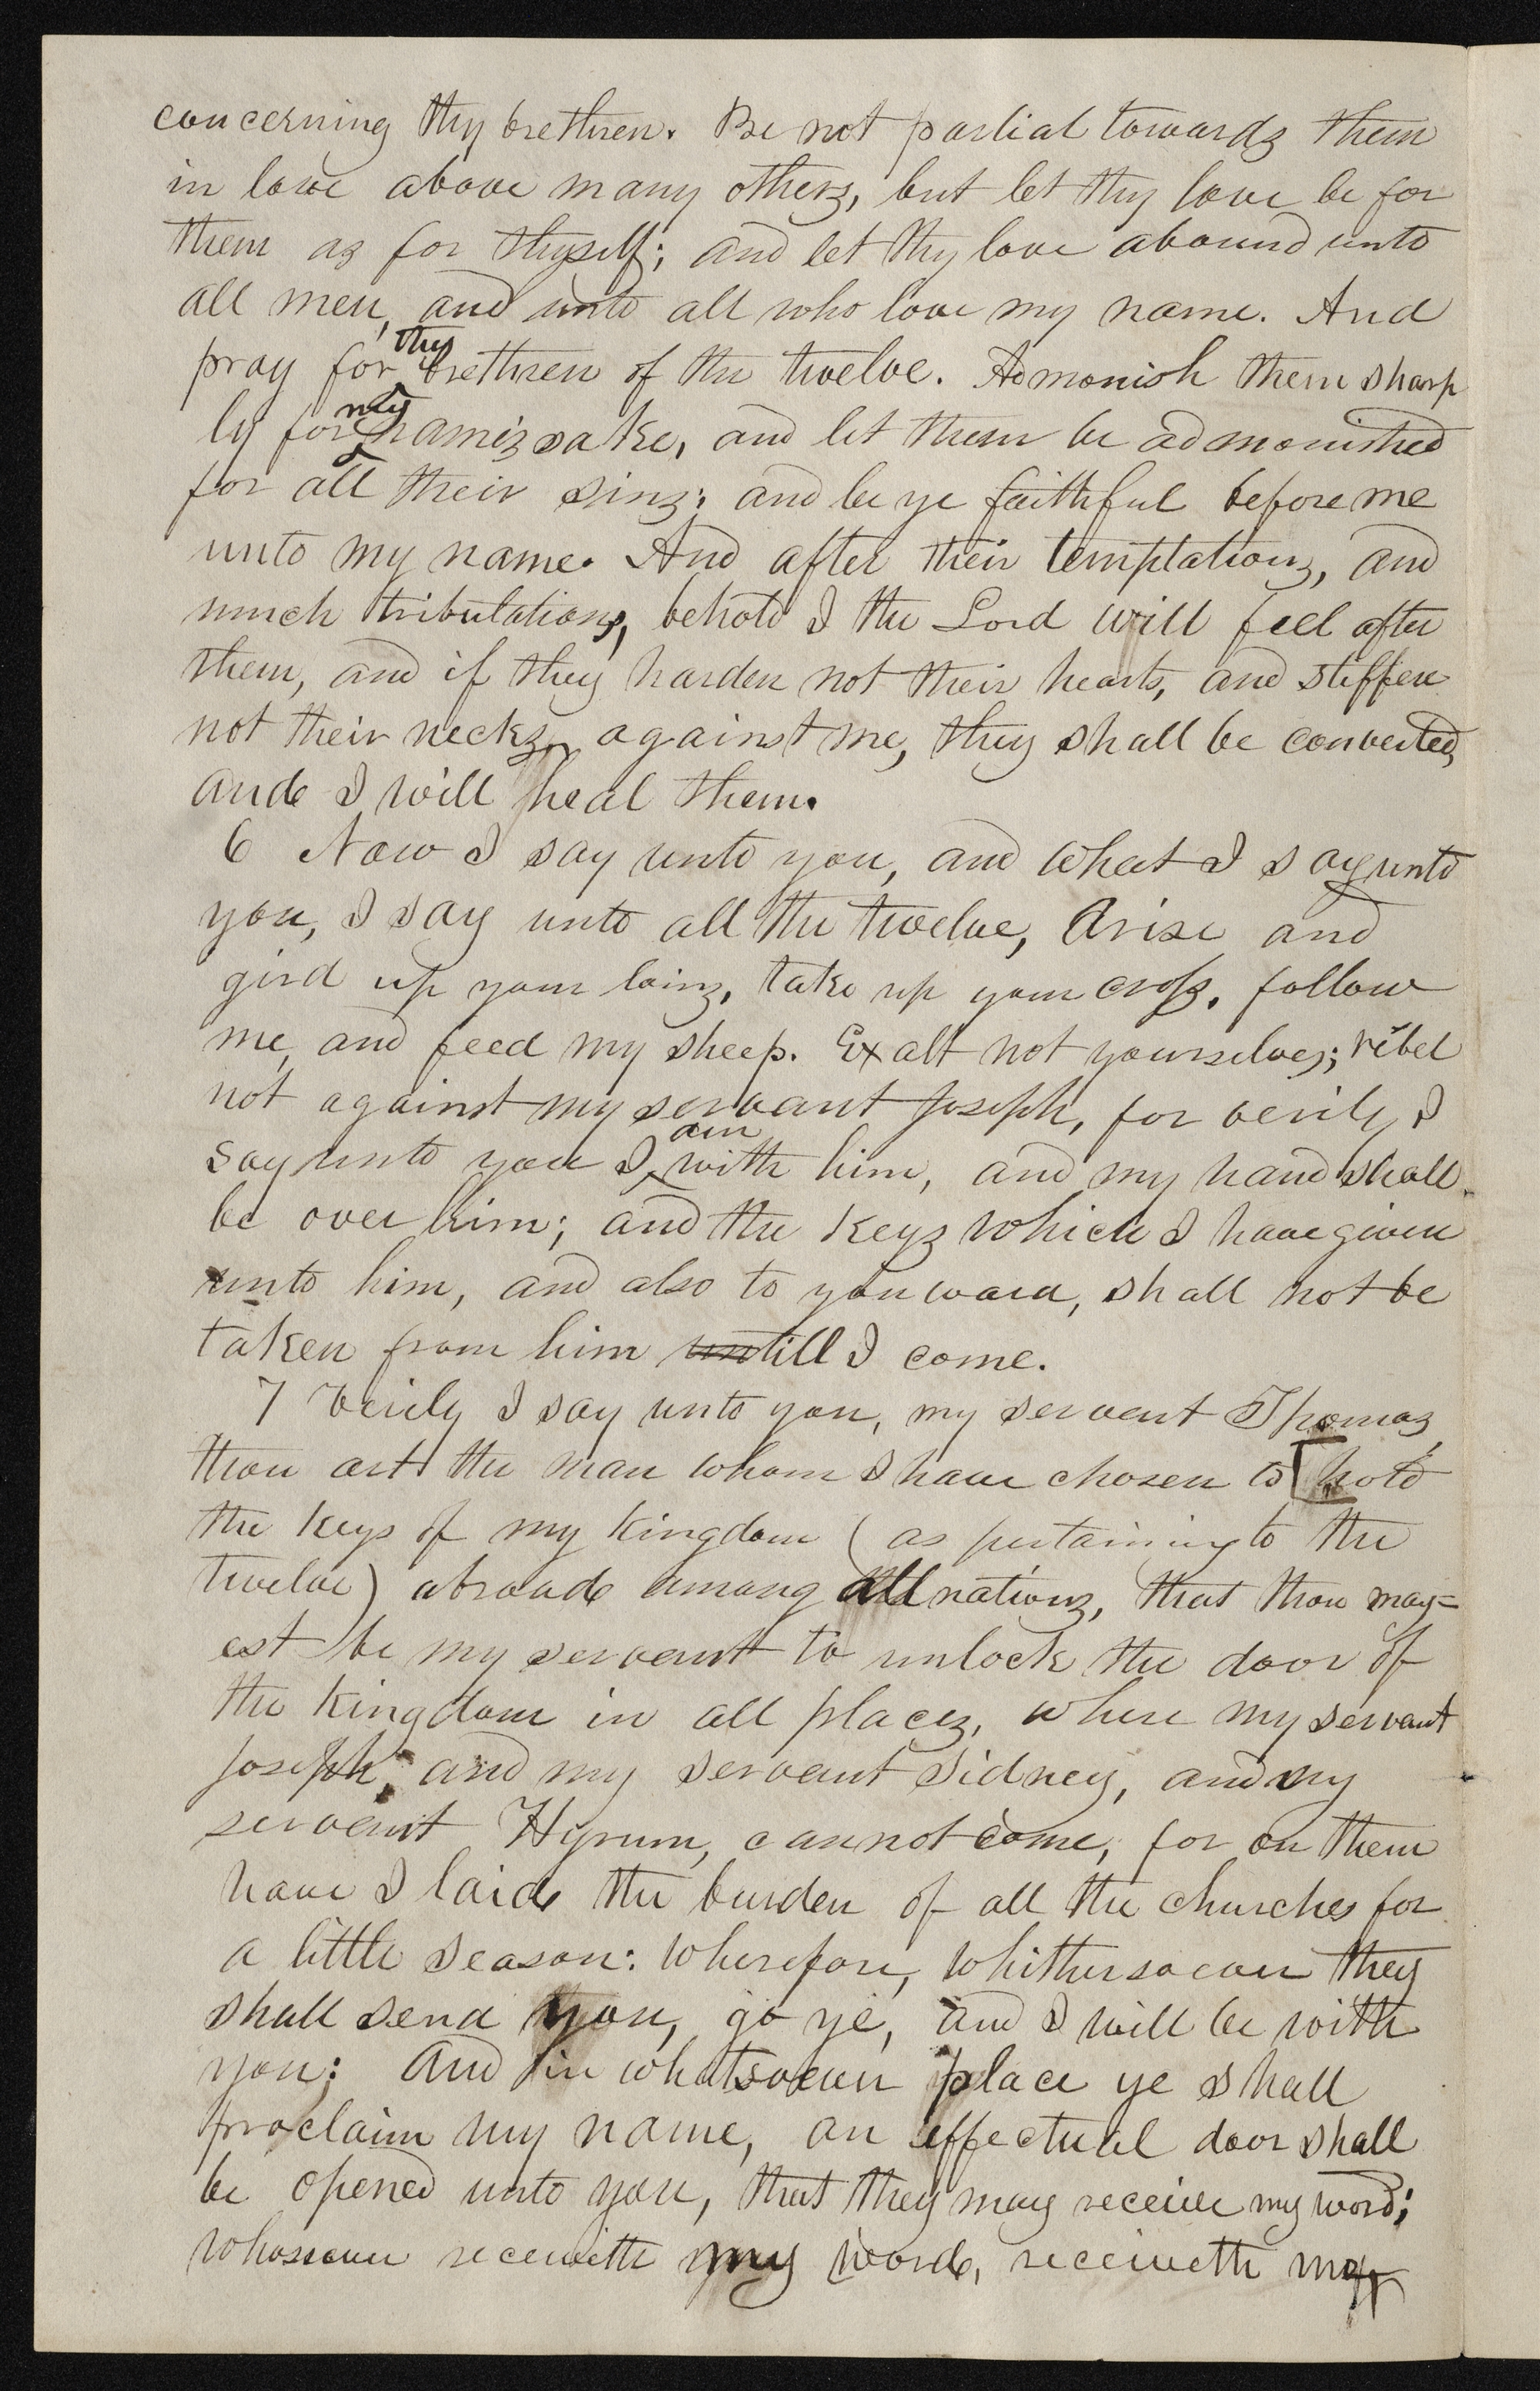 concerning thy brethren. Be not partial towards them
in love above many others, but let thy love be for
them as for thyself; and let thy love abound unto
all men, and unto all who love my name. And
pray for thy brethren of the twelve. Admonish them sharp
ly for my name's sake, and let them be admonished
for all their sins; and be ye faithful before me
unto my name. And after their temptations, and
much tribulations, behold I the Lord will feel after
them, and if they harden not their hearts, and stiffen
not their necks, against me, they shall be converted,
and I will heal them.
6 Now I say unto you, and what I say unto
you, I say unto all the twelve, Arise and
gird up your loins, take up your cross, follow
me, and feed my sheep. Exalt not yourselves; rebel
not against my servant Joseph, for verily I
say unto you I am with him, and my hand shall
be over him; and the keys which I have given
unto him, and also to youward, shall not be
taken from him untill I come.
7 Verily I say unto you, my servent Thomas,
thou art the man whom I have chosen to [hold
the keys of my kingdom (as pertaining to the
twelve) abroad among all nations, that thou may=
est be my servant to unlock the door of
the kingdom in all places, where my servant
Joseph, and my servant Sidney, and my
servant Hyrum, cannot come, for on them
have I laid the burden of all the churches for
a little season: wherefore, whithersoever they
shall send you, go ye, and I will be with
you; and in whatsoever place ye shall
proclaim my name, an effectual door shall
be opened unto you, that they may receive my word;
whosoever receiveth my word, receiveth me,